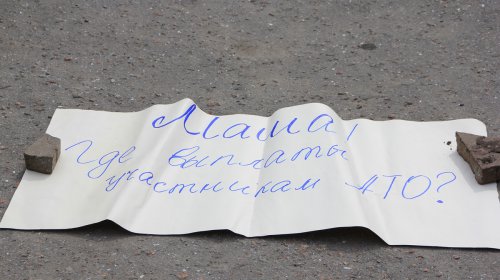 Мама!
Где выплаты
участникам АТО?